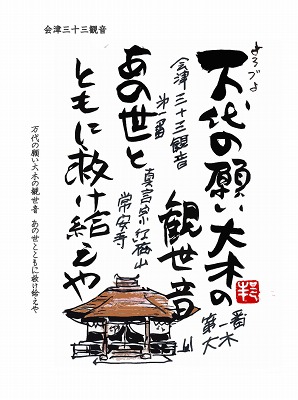 会津三十三観音
よろづよ
万代の願い大木の
観世音
会津三十三観音
第一番
あの世と
真言宗紅梅山
常安寺
ともに救け給えや
第一番
大木
万代の願い大木の観世音 あの世とともに救け給えや